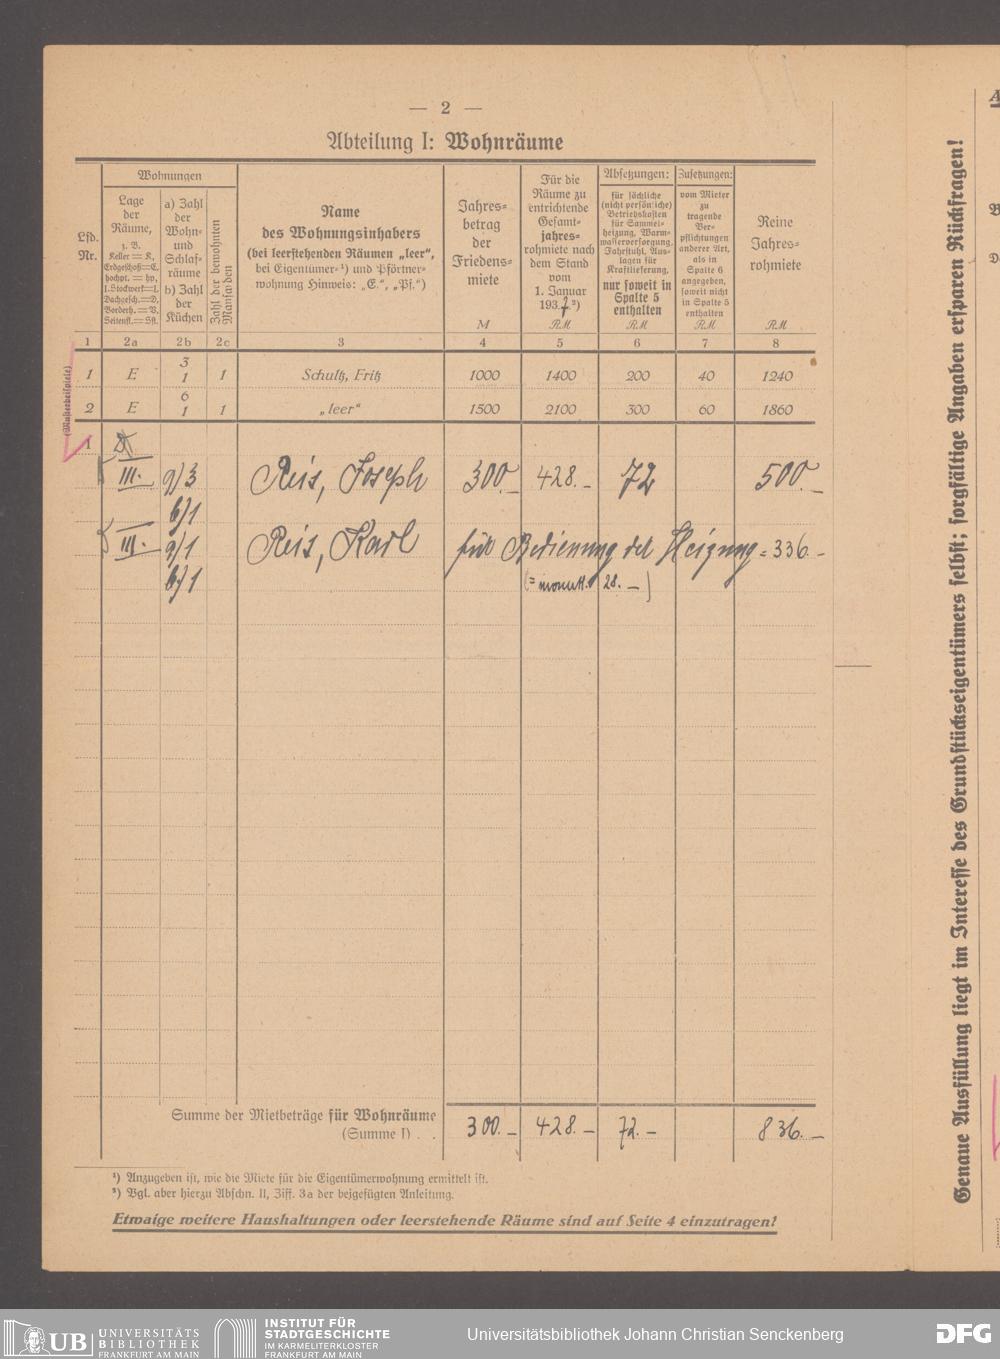 — 2 —
Abteilung I: Wohnräume
Lfd. Nr.
Wohnungen
Lage
der
Räume,
z. B.
Keller = K,
Erdgeschoß=E,
hochpt. = hp,
I. Stockwerk=I,
Dachgesch.=D,
Vorderh. = V,
Seitenfl.= Sfl.
a) Zahl
der
Wohn-
und
Schlaf-
räume
b) Zahl
der
Küchen
Zahl der bewohnten
Mansarden
Name
des Wohnungsinhabers
(bei leerstehenden Räumen „leer“,
bei Eigentümer-¹) und Pförtner-
wohnung Hinweis: „E.“, „Pf.“)
Jahres-
betrag
der
Friedens-
miete
M
Für die
Räume zu
entrichtende
Gesamt-
jahres-
rohmiete nach
dem Stand
vom
1. Januar
193.. ²)
R.M
Absetzungen:
für sächliche
(nicht persönliche)
Betriebskosten
für Sammel-
heizung, Warm-
wasserversorgung,
Fahrstuhl, Aus-
lagen für
Kraftlieferung,
nur soweit in
Spalte 5
enthalten
R.M
Zusetzungen:
vom Mieter
zu
tragende
Ver-
pflichtungen
anderer Art,
als in
Spalte 6
angegeben,
soweit nicht
in Spalte 5
enthalten
R.M
Reine
Jahres-
rohmiete
R.M
1 2a 2b 2c 3 4 5 6 7 8
(Musterbeispiele)
1 E 3 1 1 Schultz, Fritz 1000 1400 200 40 1240
2 E 6 1 1 „leer“ 1500 2100 300 60 1860
1
III. a) 3 Reis, Joseph 300.- 428.- 72 500.-
b) 1
III. a) 1 Reis, Karl für Bedienung der Heizung = 336.-
b) 1 (= monatl. 28.-)
Summe der Mietbeträge für Wohnräume
(Summe I) . . 300.- 428.- 72.- 836.-
¹) Anzugeben ist, wie die Miete für die Eigentümerwohnung ermittelt ist.
²) Vgl. aber hierzu Abschn. II, Ziff. 3a der beigefügten Anleitung.
Etwaige weitere Haushaltungen oder leerstehende Räume sind auf Seite 4 einzutragen!
Genaue Ausfüllung liegt im Interesse des Grundstückseigentümers selbst; sorgfältige Angaben ersparen Rückfragen!
UB UNIVERSITÄTS
BIBLIOTHEK
FRANKFURT AM MAIN
INSTITUT FÜR
STADTGESCHICHTE
IM KARMELITERKLOSTER
FRANKFURT AM MAIN
Universitätsbibliothek Johann Christian Senckenberg
DFG